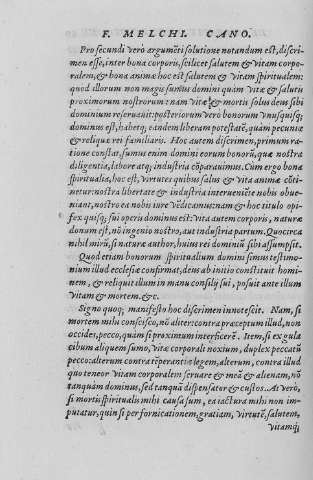 F. MELCHI. CANO.
Pro secundi verò argumēti solutione notandum est, discri-
men esse, inter bona corporis, scilicet salutem & vitam corpo-
ralem, & bona animæ hoc est salutem & vitam spiritualem:
quod illorum non magis sumus domini quàm vitæ & salutis
proximorum nostrorum: nam vitæ & mortis solus deus sibi
dominium reseruauit: posteriorum verò bonorum vnusquisq;
dominus est, habetq; eandem liberam potestatē, quàm pecuniæ
& reliquæ rei familiaris. Hoc autem discrimen, primum ra-
tione constat, sumus enim domini eorum bonorū, quæ nostra
diligentia, labore atq; industria cōparauimus. Cum ergo bona
spiritualia, hoc est, virtutes quibus salus & vita animæ cōti-
netur: nostra libertate & industria interueniēte nobis obue-
niant, nostra ea nobis iure vēdicamus: nam & hoc titulo opi-
fex quisq; sui operis dominus est: vita autem corporis, naturæ
donum est, nō ingenio nostro, aut industria partum. Quocirca
nihil mirū, si naturæ author, huius rei dominiū sibi assumpsit.
Quod etiam bonorum spiritualium domini simus testimo-
nium illud ecclesiæ confirmat, deus ab initio constituit homi-
nem, & reliquit illum in manu consilij sui, posuit ante illum
vitam & mortem. &c.
Signo quoq; manifesto hoc discrimen innotescit. Nam, si
mortem mihi conscisco, nō aliter: contra præceptum illud, non
occides, pecco, quàm si proximum interficerē. Item, si ex gula
cibum aliquem sumo, vitæ corporali noxium, duplex peccatū
pecco: alterum contra tēperantiæ legem, alterum, contra illud
quo teneor vitam corporalem seruare & meā & alienam, nō
tanquàm dominus, sed tanquā dispensator & custos. At verò,
si mortis spiritualis mihi causa sum, ea iactura mihi non im-
putatur, quin si per fornicationem, gratiam, virtutē, salutem,
vitamq;